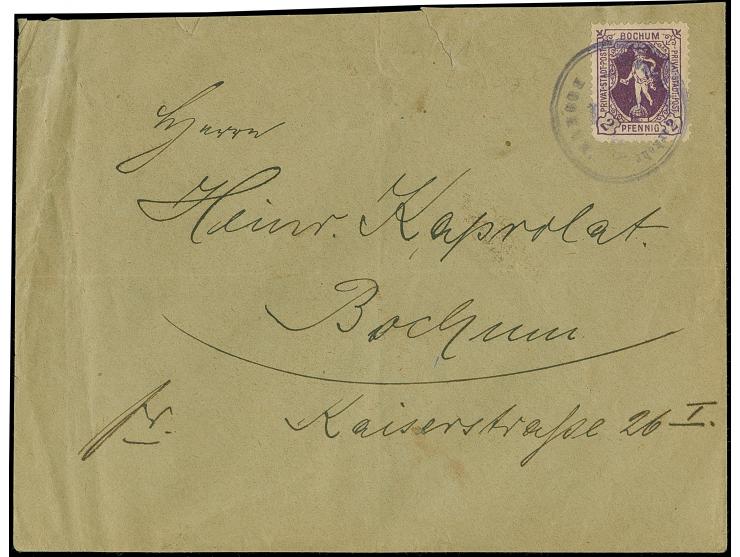 BOCHUM
PRIVAT-STADT-POST
PRIVAT-STADT-POST
2 PFENNIG 2
Herrn
Heinr. Kaprolat.
Bochum
fr. Kaiserstraße 26 I.